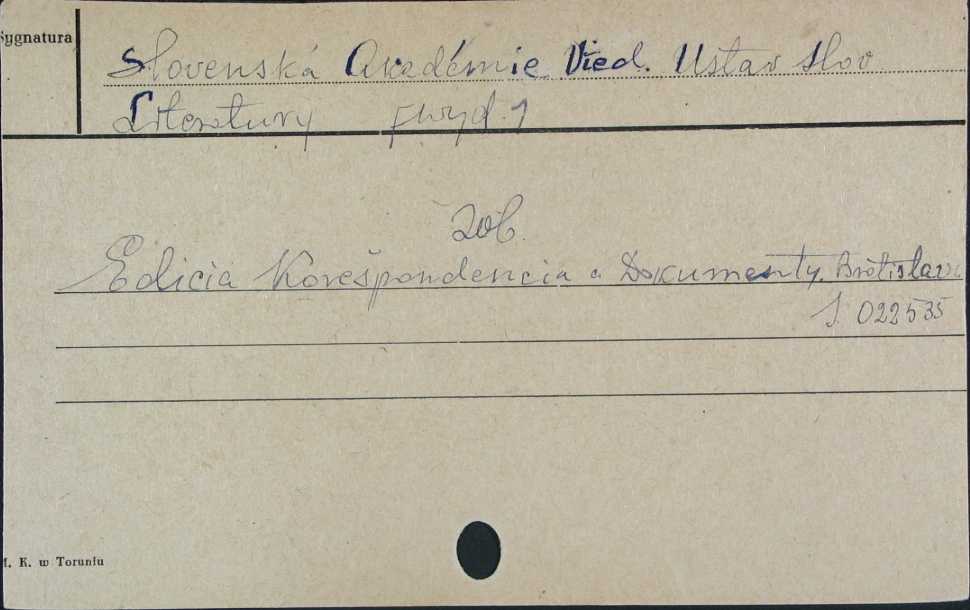 Sygnatura
Slovenská Akadémie Vied. Ustav Slov
Literatury [wyd.]
Zob.
Edicia Korešpondencia a Dokumenty. Bratislava
S. 022535
M. K. w Toruniu